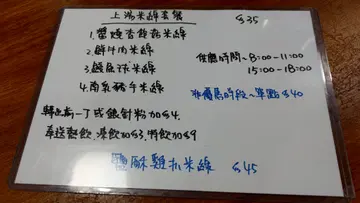 上湯米線套餐 $35
1. 醬燒香菇雞米線
2. 鮮牛肉米線
供應時間~8:00-11:00
3. 鯪魚球米線
15:00-18:00
4. 南乳豬手米線
非優惠時段~單點$40
轉出前一丁或銀針粉加$4.
奉送餐飲,凍飲加$3,特飲加$9
鹽酥雞扒米線 $45